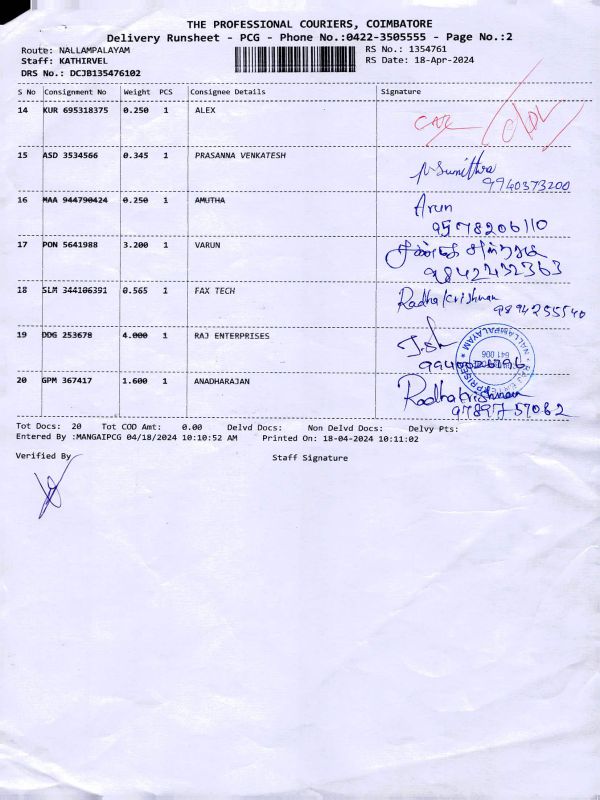 THE PROFESSIONAL COURIERS, COIMBATORE
Delivery Runsheet - PCG - Phone No.:0422-3505555 - Page No.:2
Route: NALLAMPALAYAM RS No.: 1354761
Staff: KATHIRVEL RS Date: 18-Apr-2024
DRS No.: DCJB135476102
S No Consignment No Weight PCS Consignee Details Signature
14 KUR 695318375 0.250 1 ALEX
15 ASD 3534566 0.345 1 PRASANNA VENKATESH P. Sunithra
9940373200
16 MAA 944790424 0.250 1 AMUTHA Arun
9578206110
17 PON 5641988 3.200 1 VARUN
9842432363
18 SLM 344106391 0.565 1 FAX TECH Radha Krishnan
9894255540
19 DDG 253678 4.000 1 RAJ ENTERPRISES
NALLAMPALAYAM
641 006
20 GPM 367417 1.600 1 ANADHARAJAN Radhakrishnan
9789757062
Tot Docs: 20 Tot COD Amt: 0.00 Delvd Docs: Non Delvd Docs: Delvy Pts:
Entered By :MANGAIPCG 04/18/2024 10:10:52 AM Printed On: 18-04-2024 10:11:02
Verified By Staff Signature